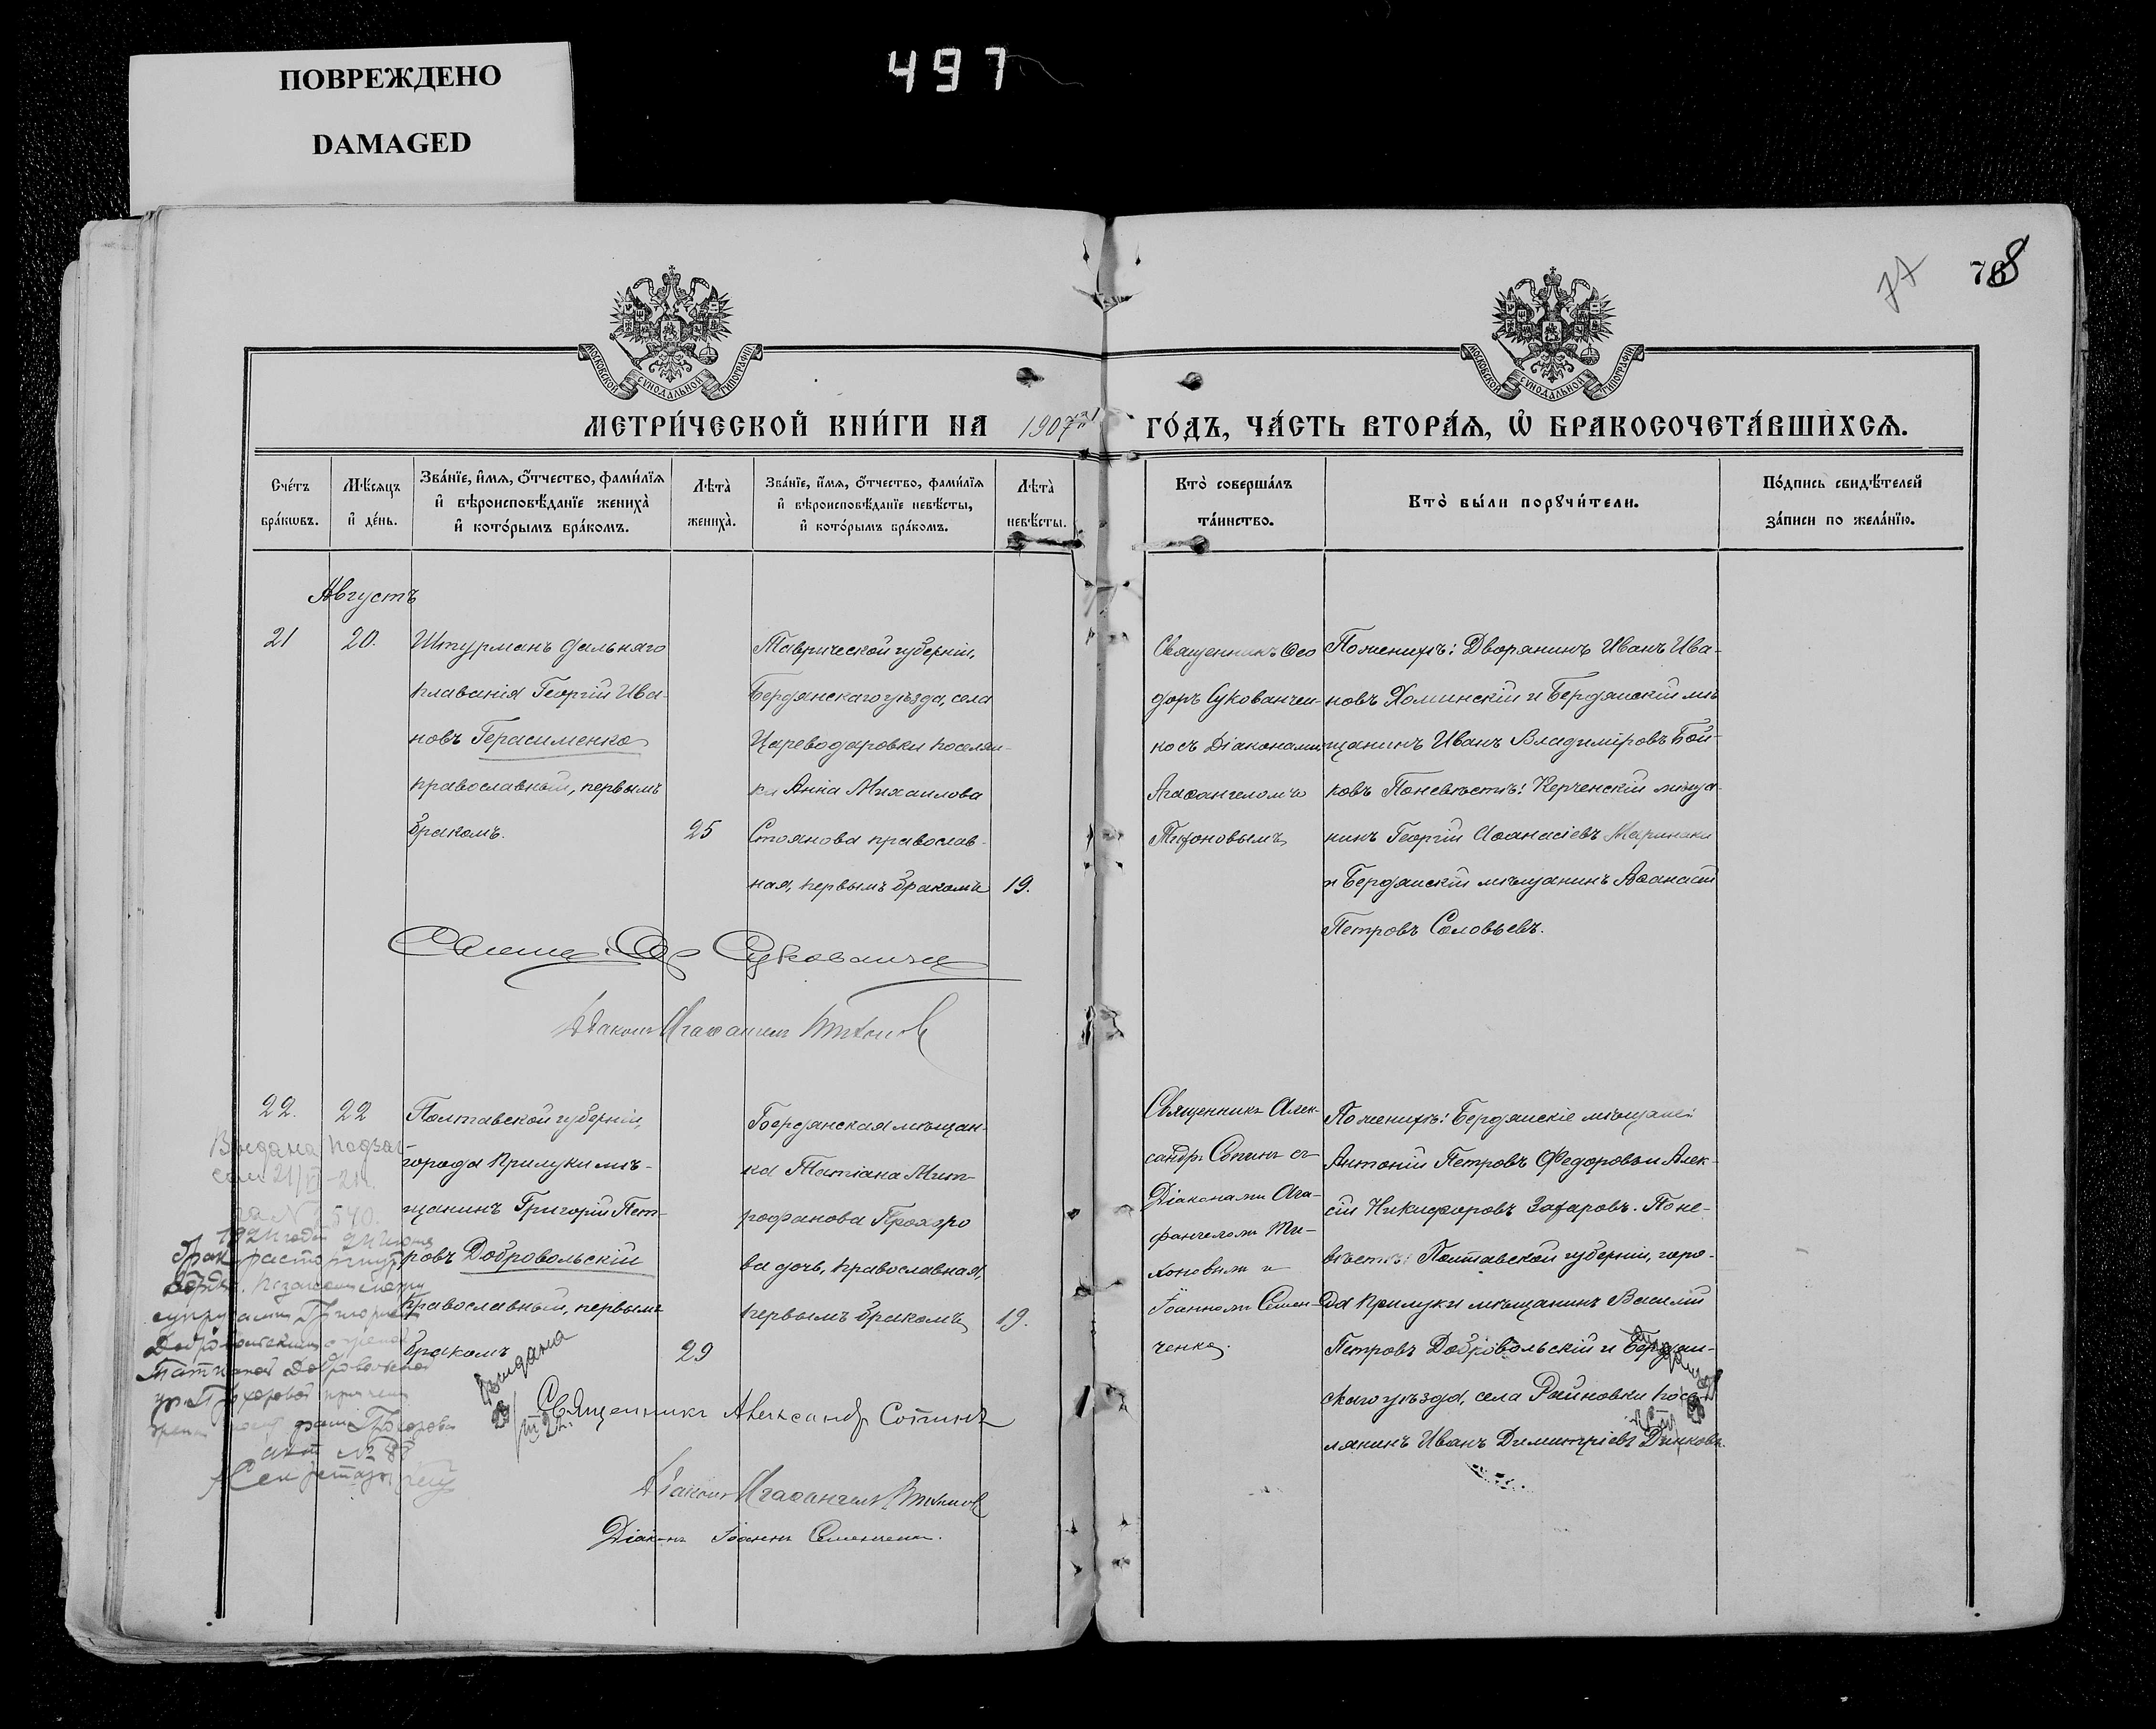 ПОВРЕЖДЕНО
DAMAGED
497
77
78
МОСКОВСКОЙ СѴНОДАЛЬНОЙ ТИПОГРАФІИ
МОСКОВСКОЙ СѴНОДАЛЬНОЙ ТИПОГРАФІИ
МЕТРИ́ЧЕСКОЙ КНИ́ГИ НА 1907й
ГО́ДЪ, ЧА́СТЬ ВТОРА́Ѧ, Ѡ БРАКОСОЧЕТА́ВШИХСѦ.
Сче́тъ
бра́кѡвъ.
Мѣ́сѧцъ
и҆ де́нь.
Зва́нїе, и҆́мѧ, ѻ҆́тчество, фами́лїѧ
и҆ вѣроисповѣ́данїе жениха̀
и҆ кото́рымъ бра́комъ.
Лѣта̀
жениха̀.
Зва́нїе, и҆́мѧ, ѻ҆́тчество, фами́лїѧ
и҆ вѣроисповѣ́данїе невѣ́сты,
и҆ кото́рымъ бра́комъ.
Лѣта̀
невѣ́сты.
Кто̀ соверша́лъ
та́инство.
Кто̀ бы́ли порꙋчи́тели.
По́дпись свидѣ́телей
за́писи по жела́нїю.
Августъ
21
20.
Штурманъ дальняго
плаванія Георгій Ива-
новъ Герасименко
православный, первымъ
бракомъ.
25
Таврической губерніи,
Бердянскаго уѣзда, села
Цареводаровки поселян-
ка Анна Михаилова
Стоянова православ-
ная, первымъ бракомъ
19.
Священникъ Ѳео
доръ Сукованчен-
ко съ Діакономъ
Агаѳангеломъ
Тихоновымъ
По женихѣ: Дворянинъ Иванъ Ива-
новъ Хоминскій и Бердянскій мѣ
щанинъ Иванъ Владиміровъ Бой-
ковъ По невѣстѣ: Керченскій мѣща-
нинъ Георгій Аѳанасіевъ Маринаки
и Бердянскій мѣщанинъ Аѳанасій
Петровъ Соловьевъ.
Діаконъ Агаѳангелъ Тихонов
22.
22
Полтавской губерніи,
города Прилуки мѣ-
щанинъ Григорій Пет-
ровъ Добровольскій
православный, первымъ
бракомъ
29
Бердянская мѣщан-
ка Татіана Мит-
рофанова Прохоро
ва дочь, православная,
первымъ бракомъ
19.
Священникъ Алек-
сандръ Сопинъ съ
Діаконами Ага-
фангеломъ Ти-
хоновымъ и
Іоанномъ Семен-
ченко.
По женихѣ: Бердянскіе мѣщане
Антоній Петровъ Федоровъ и Алек-
сій Никифоровъ Захаровъ. По не-
вѣстѣ: Полтавской губерніи, горо-
да Прилуки мѣщанинъ Василій
Петровъ Добровольскій и Бердян-
скаго уѣзда, села Райновки посе-
лянинъ Иванъ Димитріевъ
Выдана
1921 года
брак расторгнут
Григорием
Добровольским
Татианой Добровольской
акт № 88
Секретарь
Выдана
Священникъ Александр Сопинъ
Діаконъ Агаѳангелъ Тихонов
Діаконъ Іоаннъ Семенченко.